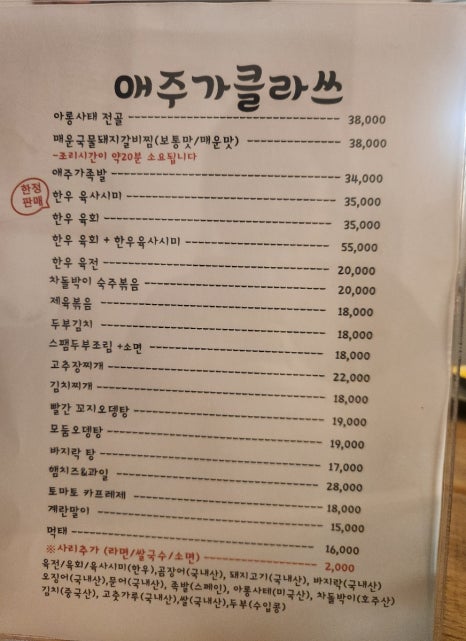 애주가클라쓰
아롱사태 전골 38,000
매운국물돼지갈비찜(보통맛/매운맛) 38,000
-조리시간이 약20분 소요됩니다
애주가족발 34,000
한정
판매
한우 육사시미 35,000
한우 육회 35,000
한우 육회 + 한우육사시미 55,000
한우 육전 20,000
차돌박이 숙주볶음 20,000
제육볶음 18,000
두부김치 18,000
스팸두부조림 +소면 18,000
고추장찌개 22,000
김치찌개 18,000
빨간 꼬지오뎅탕 19,000
모둠오뎅탕 19,000
바지락 탕 17,000
햄치즈&과일 28,000
토마토 카프레제 18,000
계란말이 15,000
먹태 16,000
※사리추가 (라면/쌀국수/소면) 2,000
육전/육회/육사시미(한우),곰장어(국내산), 돼지고기(국내산), 바지락(국내산)
오징어(국내산),문어(국내산), 족발(스페인), 아롱사태(미국산), 차돌박이(호주산)
김치(중국산), 고춧가루(국내산),쌀(국내산),두부(수입콩)